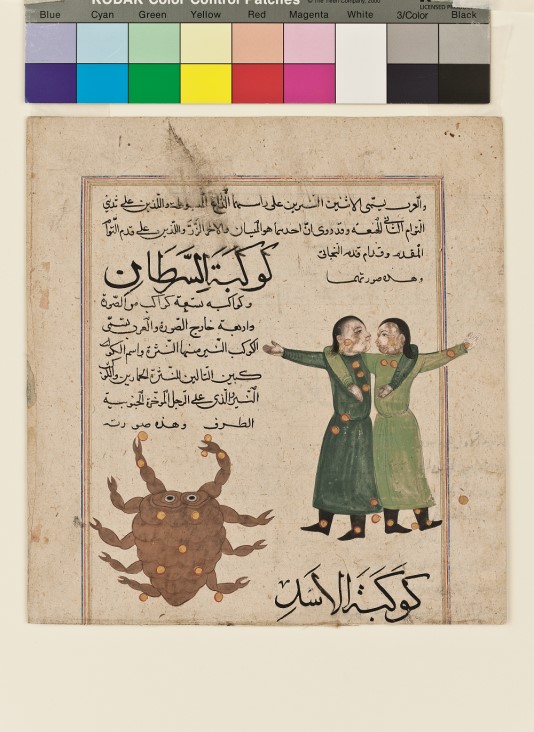 KODAK Color Control Patches
Blue Cyan Green Yellow Red Magenta White 3/Color Black
والعرب يسمى الاثنين النيرين على راسيهما الذراع المبسوطة واللذين على ثديي
التوام الثانى الهنعه وقد روى ان احدهما هو الميسان والاخر الزر واللذين على قدم التوام
المقدم وقدام قدمه
وهذه صورتهما
كوكبة السرطان
وكواكبه تسعة كواكب من الصورة
واربعة خارج الصورة والعرب تسمى
الكوكب النير منهما النثرة واسم الكو
كبين التاليين النثرة الحمارين والكوكب
النير الذى على الرجل الموخرة الجنوبية
الطرف وهذه صورته
كوكبة الاسد